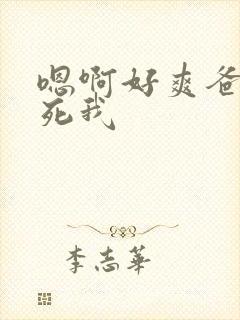 嗯啊好爽爸
死我
李志華